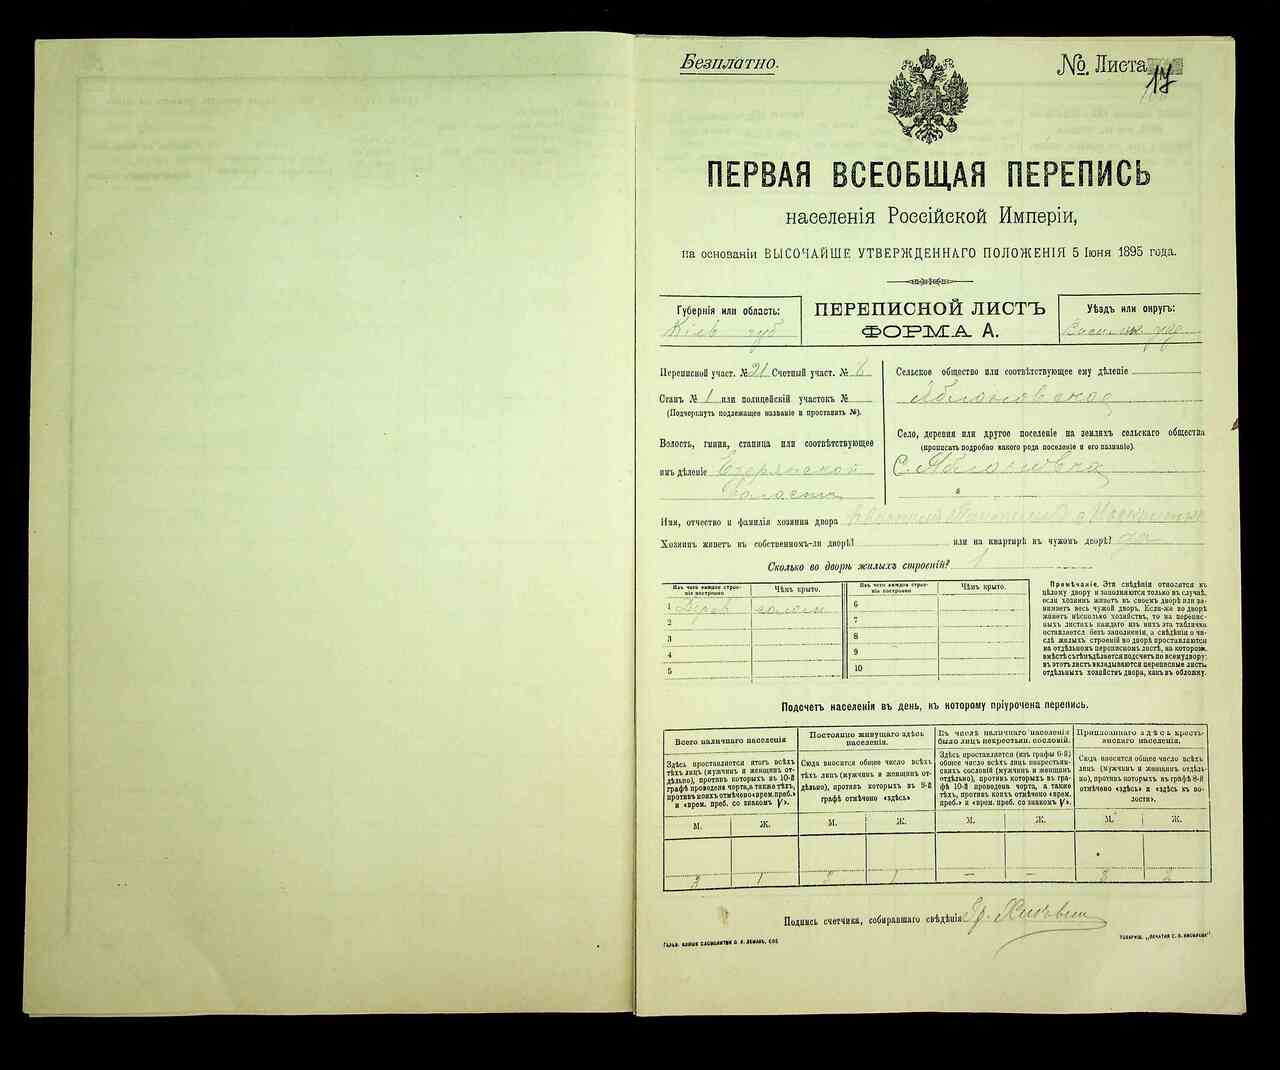 Безплатно.
№. Листа 17
ПЕРВАЯ ВСЕОБЩАЯ ПЕРЕПИСЬ
населенія Россійской Имперіи,
на основаніи ВЫСОЧАЙШЕ УТВЕРЖДЕННАГО ПОЛОЖЕНІЯ 5 Іюня 1895 года.
Губернія или область:
Кіев губ
ПЕРЕПИСНОЙ ЛИСТЪ
ФОРМА А.
Уѣздъ или округъ:
Васильк. уѣзд
Переписной участ. № 21 Счетный участ. № 8
Станъ № 1 или полицейскій участокъ №
(Подчеркнуть подлежащее названіе и проставить №).
Волость, гмина, станица или соотвѣтствующее
имъ дѣленіе
Волость
Сельское общество или соотвѣтствующее ему дѣленіе
Яблоновская
Село, деревня или другое поселеніе на земляхъ сельскаго общества
(прописать подробно какого рода поселеніе и его названіе).
С. Яблоновка
Имя, отчество и фамилія хозяина двора
Хозяинъ живетъ въ собственномъ-ли дворѣ? или на квартирѣ въ чужомъ дворѣ? да
Сколько во дворѣ жилыхъ строеній? 1
Изъ чего каждое строе-
ніе построено
Чѣмъ крыто.
Изъ чего каждое строе-
ніе построено
Чѣмъ крыто.
1 Дерев солом 6
2 7
3 8
4 9
5 10
Примѣчаніе. Эти свѣдѣнія относятся къ
цѣлому двору и заполняются только въ случаѣ,
если хозяинъ живетъ въ своемъ дворѣ или за-
нимаетъ весь чужой дворъ. Если-же во дворѣ
живетъ нѣсколько хозяйствъ, то на перепис-
ныхъ листахъ каждаго изъ нихъ эта табличка
оставляется безъ заполненія, а свѣдѣнія о чи-
слѣ жилыхъ строеній во дворѣ проставляются
на отдѣльномъ переписномъ листѣ, на которомъ
вмѣстѣ съ тѣмъ дѣлается подсчетъ по всему двору;
въ этотъ листъ вкладываются переписные листы
отдѣльныхъ хозяйствъ двора, какъ въ обложку.
Подсчетъ населенія въ день, къ которому пріурочена перепись.
Всего наличнаго населенія
Здѣсь проставляется итогъ всѣхъ
тѣхъ лицъ (мужчинъ и женщинъ от-
дѣльно), противъ которыхъ въ 10-й
графѣ проведена черта, а также тѣхъ,
противъ коихъ отмѣчено «врем. преб.»
и «врем. преб. со знакомъ V».
Постоянно живущаго здѣсь
населенія.
Сюда вносится общее число всѣхъ
тѣхъ лицъ (мужчинъ и женщинъ от-
дѣльно), противъ которыхъ въ 9-й
графѣ отмѣчено «здѣсь»
Въ числѣ наличнаго населенія
было лицъ некрестьян. сословій.
Здѣсь проставляется (изъ графы 6-й)
общее число всѣхъ лицъ некрестьян-
скихъ сословій (мужчинъ и женщинъ
отдѣльно), противъ которыхъ въ гра-
фѣ 10-й проведена черта, а также
тѣхъ, противъ коихъ отмѣчено «врем.
преб.» и «врем. преб. со знакомъ V».
Приписаннаго здѣсь кресть-
янскаго населенія.
Сюда вносится общее число всѣхъ
лицъ (мужчинъ и женщинъ отдѣль-
но), противъ которыхъ въ графѣ 8-й
отмѣчено «здѣсь» и «здѣсь къ во-
лости».
М. Ж. М. Ж. М. Ж. М. Ж.
3 1 3 1 — — 3 2
Подпись счетчика, собиравшаго свѣдѣнія